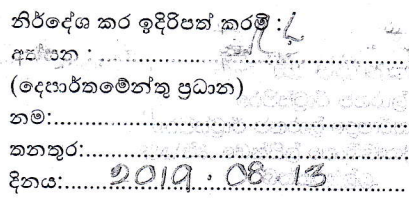 නිර්දේශ කර ඉදිරිපත් කරමි :
අත්සන : ..............................................
(දෙපාර්තමේන්තු ප්‍රධාන)
නම:..................................................
තනතුර:..............................................
දිනය:..... 2019 . 08 . 13 .....